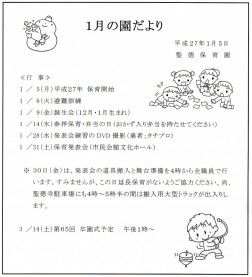 1月の園だより
平成27年1月5日
聖徳保育園
≪行 事≫
1 / 5(月)平成27年 保育開始
1 / 6(火)避難訓練
1 / 9(金)誕生会(12月・1月生まれ)
1 /14(水)参拝保育・弁当の日(おかず入り弁当を持たせてください)
1 /28(水)発表会練習のDVD撮影(業者:タチプロ)
1 /31(土)保育発表会(市民会館文化ホール)
※ 30日(金)は、発表会の道具搬入と舞台準備を4時から全職員で行
います。すみませんが、この日延長保育がないようご協力ください。尚、
聖徳寺駐車場にも4時~5時半の間は搬入用大型トラックが出入りし
ます。
3 /14(土)第65回 卒園式予定 午後1時~